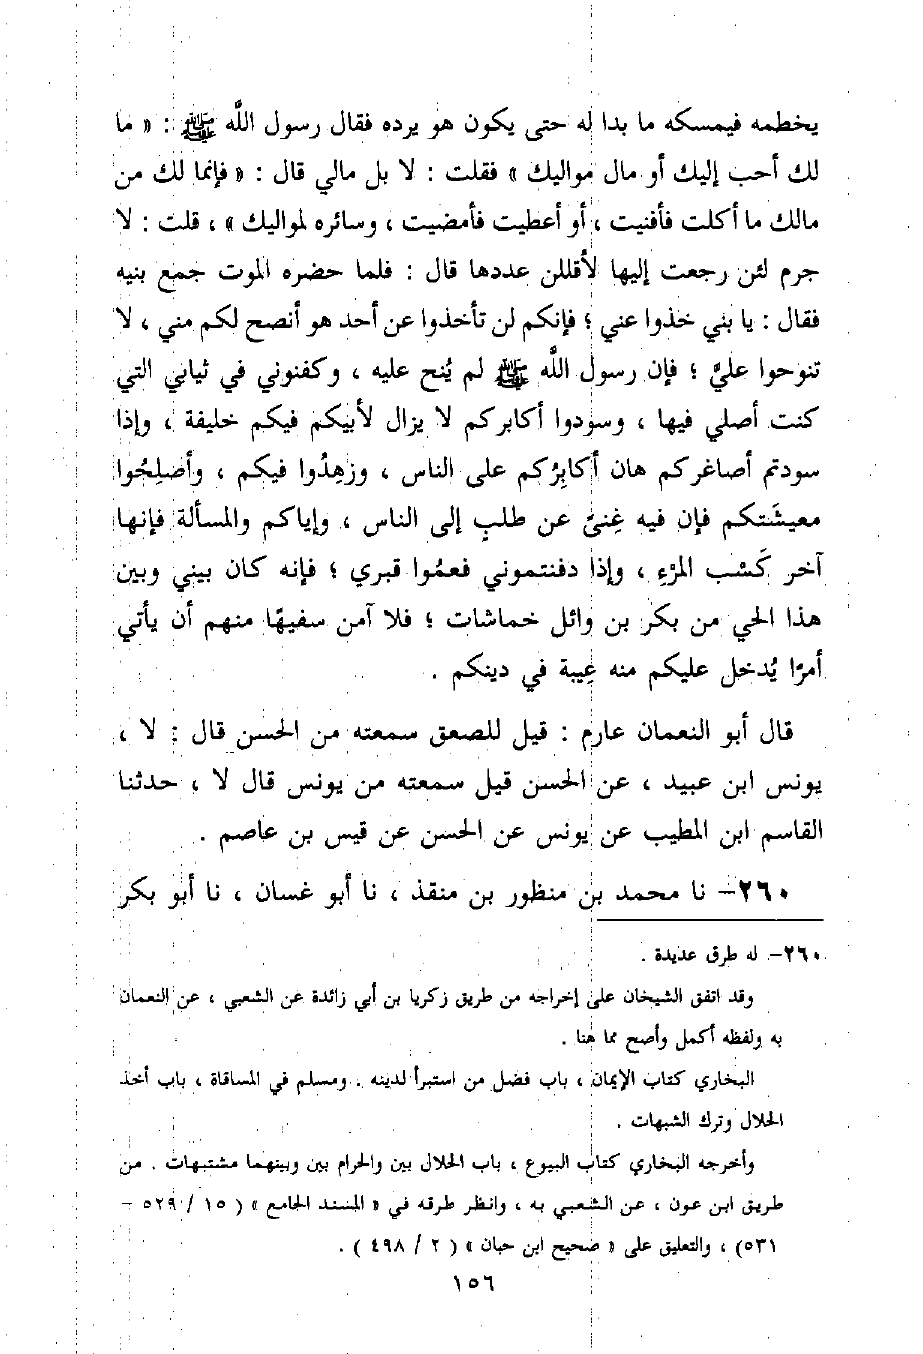 يخطمه فيمسكه ما بدا له حتى يكون هو يرده فقال رسول اللَّه ﷺ : « ما
لك أحب إليك أو مال مواليك » فقلت : لا بل مالي قال : « فإنما لك من
مالك ما أكلت فأفنيت ، أو أعطيت فأمضيت ، وسائره لمواليك » ، قلت : لا
جرم لئن رجعت إليها لأقللن عددها قال : فلما حضره الموت جمع بنيه
فقال : يا بني خذوا عني ؛ فإنكم لن تأخذوا عن أحد هو أنصح لكم مني ، لا
تنوحوا عليَّ ؛ فإن رسول اللَّه ﷺ لم يُنح عليه ، وكفنوني في ثيابي التي
كنت أصلي فيها ، وسودوا أكابركم لا يزال لأبيكم فيكم خليفة ، وإذا
سودتم أصاغركم هان أكابِرُكم على الناس ، وزهِدُوا فيكم ، وأصلِحُوا
معيشَتكم فإن فيه غِنىً عن طلبٍ إلى الناس ، وإياكم والمسألة فإنها
آخر كَسْب المرْءِ ، وإذا دفنتموني فعمُوا قبري ؛ فإنه كان بيني وبين
هذا الحي من بكر بن وائل خماشات ؛ فلا آمن سفيهًا منهم أن يأتي
أمرًا يُدخل عليكم منه عِيبة في دينكم .
قال أبو النعمان عارم : قيل للصعق سمعته من الحسن قال : لا ،
يونس ابن عبيد ، عن الحسن قيل سمعته من يونس قال لا ، حدثنا
القاسم ابن المطيب عن يونس عن الحسن عن قيس بن عاصم .
٢٦٠- نا محمد بن منظور بن منقذ ، نا أبو غسان ، نا أبو بكر
٢٦٠- له طرق عديدة .
وقد اتفق الشيخان على إخراجه من طريق زكريا بن أبي زائدة عن الشعبي ، عن النعمان
به ولفظه أكمل وأصح مما هنا .
البخاري كتاب الإيمان ، باب فضل من استبرأ لدينه . ومسلم في المساقاة ، باب أخذ
الحلال وترك الشبهات .
وأخرجه البخاري كتاب البيوع ، باب الحلال بين والحرام بين وبينهما مشتبهات . من
طريق ابن عون ، عن الشعبي به ، وانظر طرقه في « المسند الجامع » ( ١٥ / ٥٢٩ -
٥٣١) ، والتعليق على « صحيح ابن حبان » ( ٢ / ٤٩٨ ) .
١٥٦